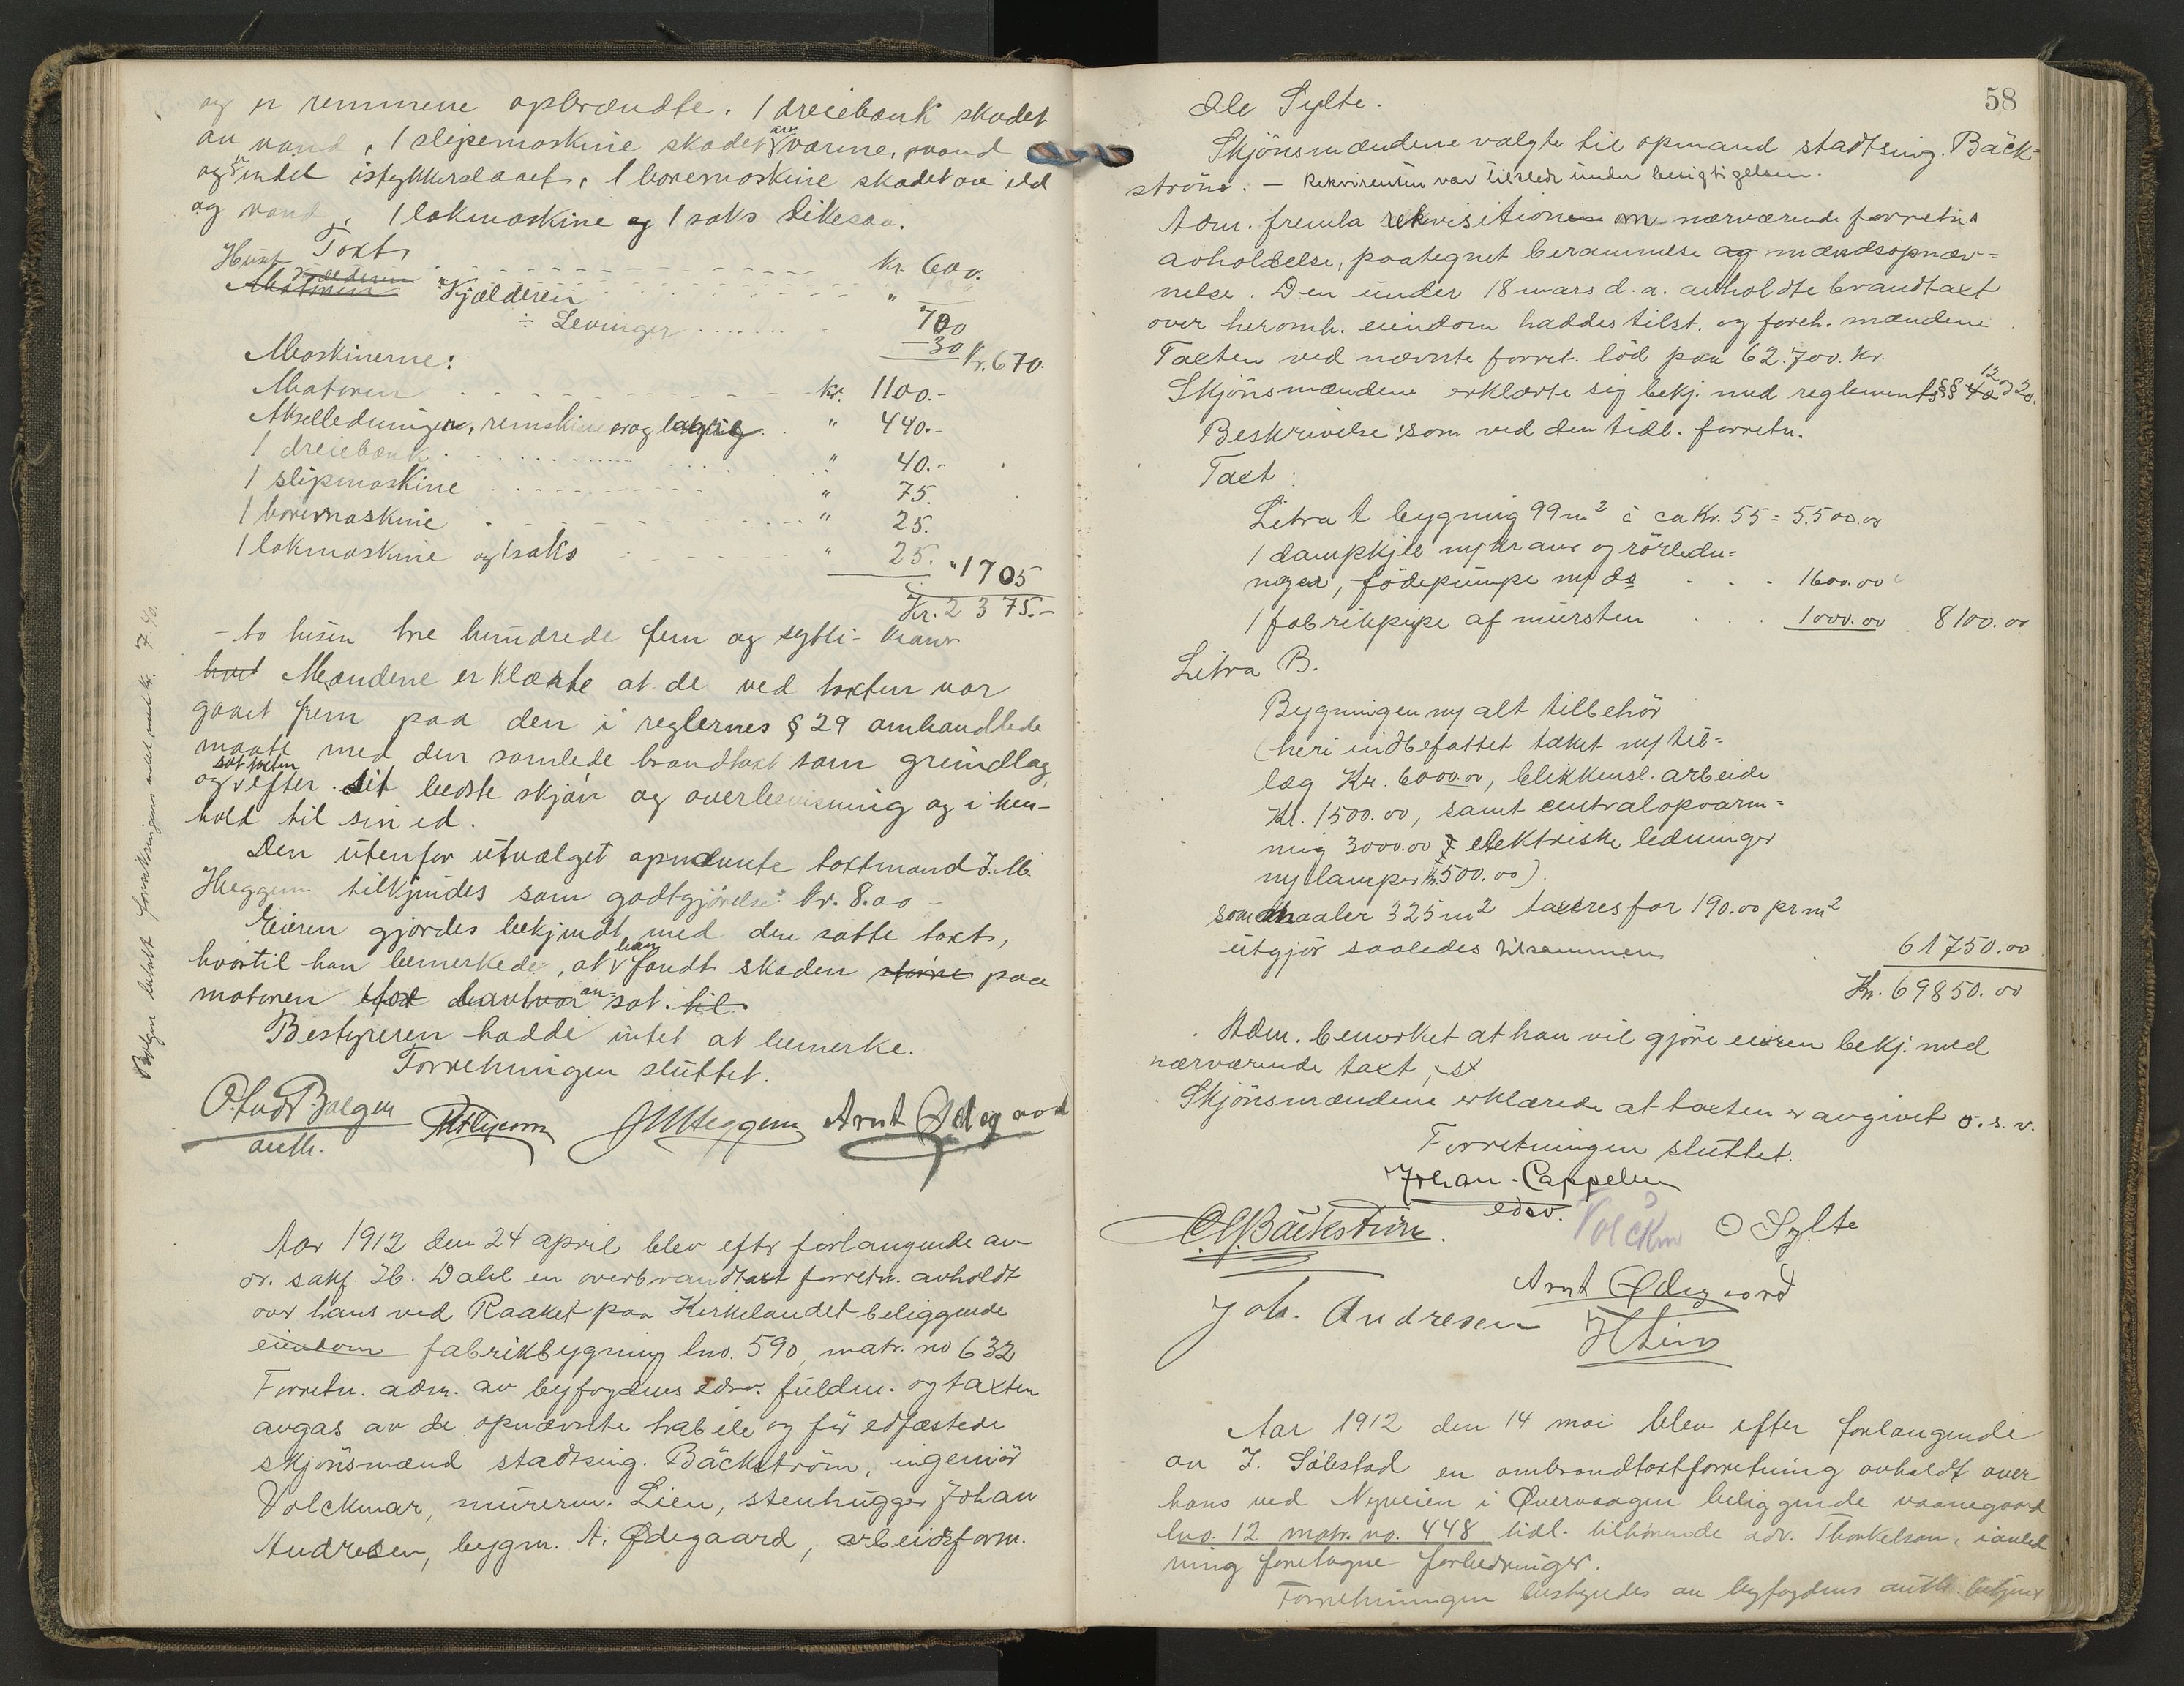 og er remmene opbrændte. 1 dreiebænk skadet
av vand, 1 slipemaskine skadet av varme, vand
og er intet istykkerslaaet, 1 boremaskine skadet av ild
og vand, 1 lokmaskine og 1 saks likesaa.
Taxt
Huset kr. 600.
Kjælderen "
÷ Levninger 700
30 kr. 670.
Maskinerne:
Motoren kr. 1100.-
Akselledningen, remskiver og " 440.-
1 dreiebænk " 40.-
1 slipmaskine " 75.
1 boremaskine " 25.
1 lokmaskine og 1 saks " 25. " 1705
Kr. 2375.-
- to tusen tre hundrede fem og sytti- kroner
Mændene erklærte at de ved taxten var
gaaet frem paa den i reglernes § 29 omhandlede
maate med den samlede brandtaxt som grundlag,
og sat taxten efter sit bedste skjøn og overbevisning og i hen-
hold til sin ed.
Den utenfor utvalget opnævnte taxtmand J. M.
Heggem tilkjendes som godtgjørelse kr. 8.00 -
Eieren gjordes bekjendt med den satte taxt,
hvortil han bemerkede, at han fandt skaden større paa
motoren sat. til
Bestyreren hadde intet at bemerke.
Forretningen sluttet.
O. Lud. Bolgen
auth.
JMHeggem Arnt Ødegaard
Aar 1912 den 24 april blev eftr forlangende av
or. sakf. Hb. Dahl en overbrandtaxt forretn. avholdt
over hans ved Raaket paa Kirkelandet beliggende
eiendom fabrikbygning lno. 590, matr. no 632
Forretn. adm. av byfogdens edsv. fuldm. og taxten
avgas av de opnævnte habile og før edfæstede
skjönsmænd stadsing. Bäckström, ingeniör
Volckmar, murerm. Lien, stenhugger Johan
Andresen, bygm. A. Ødegaard, arbeidsform.
58
Ole Sylte.
Skjönsmændene valgte til opmand stadtsing. Bäck-
ström. - Rekvirenten var tilstede under besigtigelsen.
Adm. fremla rekvisitionen om nærværende forretns
avholdelse, paategnet berammelse og mændsopnæv=
nelse. Den under 18 mars d.a. avholdte brandtaxt
over heromh. eiendom haddes tilst. og foreh. mændene.
Taxten ved nævnte forret. löd paa 62.700. kr.
Skjönsmændene erklærte sig bekj. med reglements §§ 12 og 20.
Beskrivelse som ved den tidl. forretn.
Taxt:
Litra A bygning 99 m² à ca Kr. 55 = 5.500.00
1 dampkjel m/ kraner og rörled-
ninger, födepumpe m/ do 1600.00
1 fabrikpipe af mursten 1000.00 8100.00
Litra B.
Bygningen m/ alt tilbehör
(heri indbefattet taket m/ til=
læg Kr. 6000.00, blikkensl. arbeide
Kr. 1500.00, samt centralopvarm=
ning 3000.00 & elektriske ledninger
m/ lamper kr. 500.00).
som maaler 325 m² taxeres for 190.00 pr m²
utgjör saaledes tilsammen 61750.00
Kr. 69850.00
Adm. bemerket at han vil gjöre eieren bekj. med
nærværende taxt,
Skjönsmændene erklærede at taxten er avgivet o.s.v.
Forretningen sluttet.
Johan Cappelen
edsv.
Bäckström. Volckm O Sylte
Arnt Ødegaard
Joh. Andresen H Lien
Aar 1912 den 14 mai blev efter forlangende
av J. Sølestad en ombrandtaxtforretning avholdt over
hans ved Nyveien i Øvervaagen beliggende vaanegaard
lno. 12 matr. no. 448 tidl. tilhørende adv. Thorkelson, i anled
ning foretagne forbedringer.
Forretningen bestyredes av byfogdens auth.